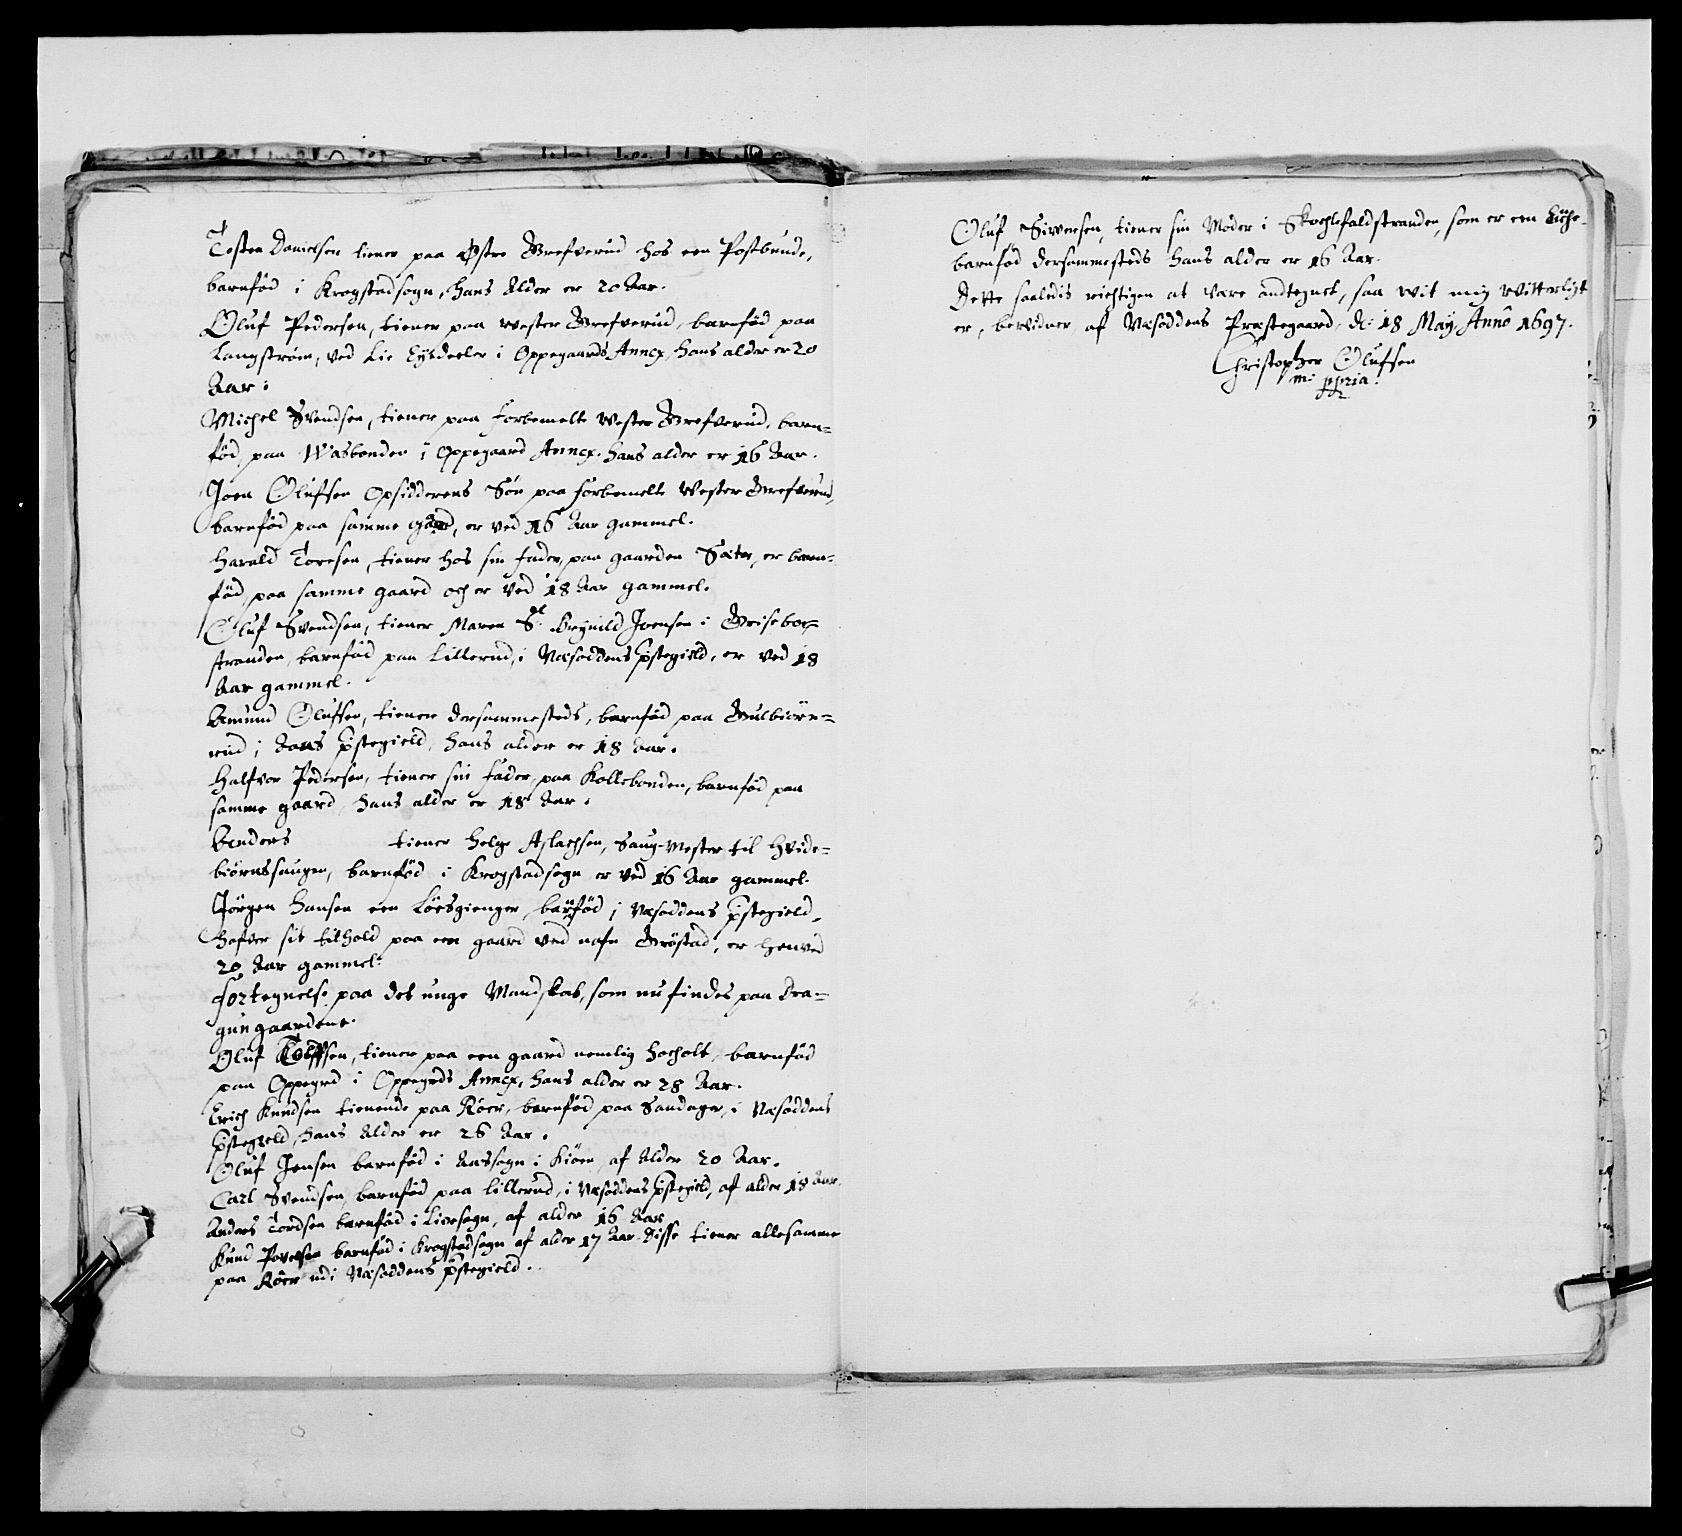 Tosten Danielsen tiener paa Østre Grefverud hos een Postbunde,
barnfød i Krogstadsogn, hans Alder er 20 Aar.
Oluf Pedersen, tiener paa Wester Grefverud, barnfød paa
Langstrøm, ved Lie Eysdeeler i Oppegaards Annex, hans alder er 20
Aar.
Michel Svendsen, tiener paa forbemelte Wester Grefverud, barn=
fød, paa Wasbonden i Oppegaard Annex, hans alder er 16 Aar.
Joen Olufsen Opsidderens Søn paa forbemelte Wester Grefverud,
barnfød paa samme gaard, er ved 16 Aar gammel.
Harald Toresen, tiener hos sin fader, paa gaarden Sæter, er barn=
fød, paa samme gaard och er ved 18 Aar gammel.
Oluf Svendsen, tiener Maren Sl. Joensen i Grisebor=
stranden, barnfød paa Lillerud, i Næsoddens pstegield, er ved 18
Aar gammel.
Amund Olufsen, tiener dersammesteds, barnfød paa Gulbiørn=
rud i Aaas pstegield, hans alder er 18 Aar.
Halfvor Pedersen, tiener sin fader, paa Kollebonden, barnfød paa
samme gaard, hans alder er 18 Aar.
Anders tiener Helge Aslachsen, Saug-Mester til Hvide=
biørnssaugen, barnfød i Krogstadsogn er ved 16 Aar gammel.
Jørgen Hansen een Løesgienger, barnfød i Næsoddens pstegield,
hafver sit tilhold paa een gaard ved nafn Grøstad, er henved
20 Aar gammel.
Fortegnelse paa det unge Mandskab, som nu findes paa Dra=
gungaardene.
Oluf Tolffsen, tiener paa een gaard nemlig Hocholt, barnfød
paa Oppegrd i Oppegrds Annex, hans alder er 28 Aar.
Erich Knudsen tienende paa Røer, barnfød paa Sandager, i Næsoddens
pstegield, hans Alder er 26 Aar.
Oluf Jensen barnfød i Aassogn i Kiøen, af Alder 20 Aar.
Carl Svendsen, barnfød paa Lillerud, i Næsoddens pstegield, af alder 18 Aar.
Anders Tordsen barnfød i Liersogn, af alder 16 Aar
Knud Povelsen barnfød i Krogstadsogn af alder 17 Aar. Disse tiener allesamme
paa Røer udi Næsoddens pstegield.
Oluf Siversen, tiener sin Moder i Skochlefaldstranden, som er een Enche.
barnfød dersammesteds hans alder er 16 Aar.
Dette saaledis richtigen at være andtegnet, saa vit mig witterligt
er, bevidner af Næsoddens Præstegaard, d: 18 May, Annô 1697.
Christopher Olufsen
m: ppria.